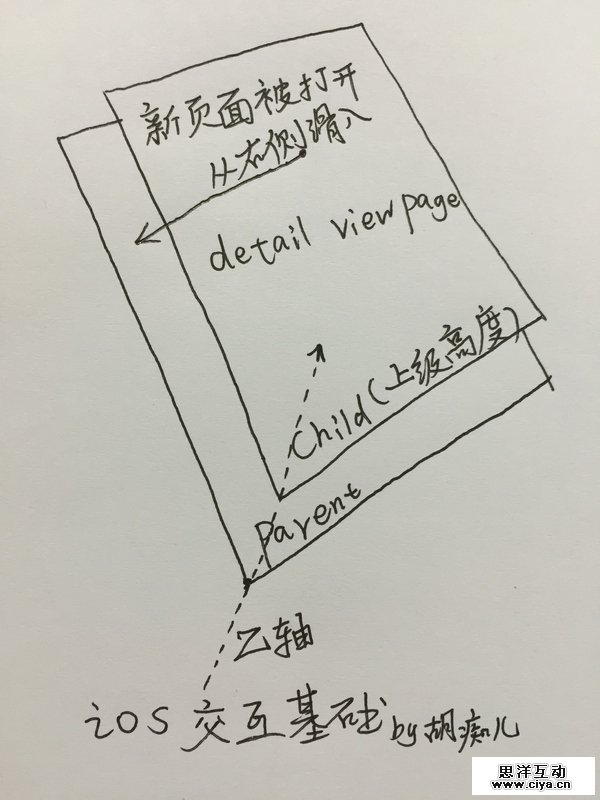 新页面被打开
从右侧滑入
detail view page
Child(上级高度)
Parent
Z轴
iOS 交互基础 by 胡痴儿
思洋互动
www.ciya.cn